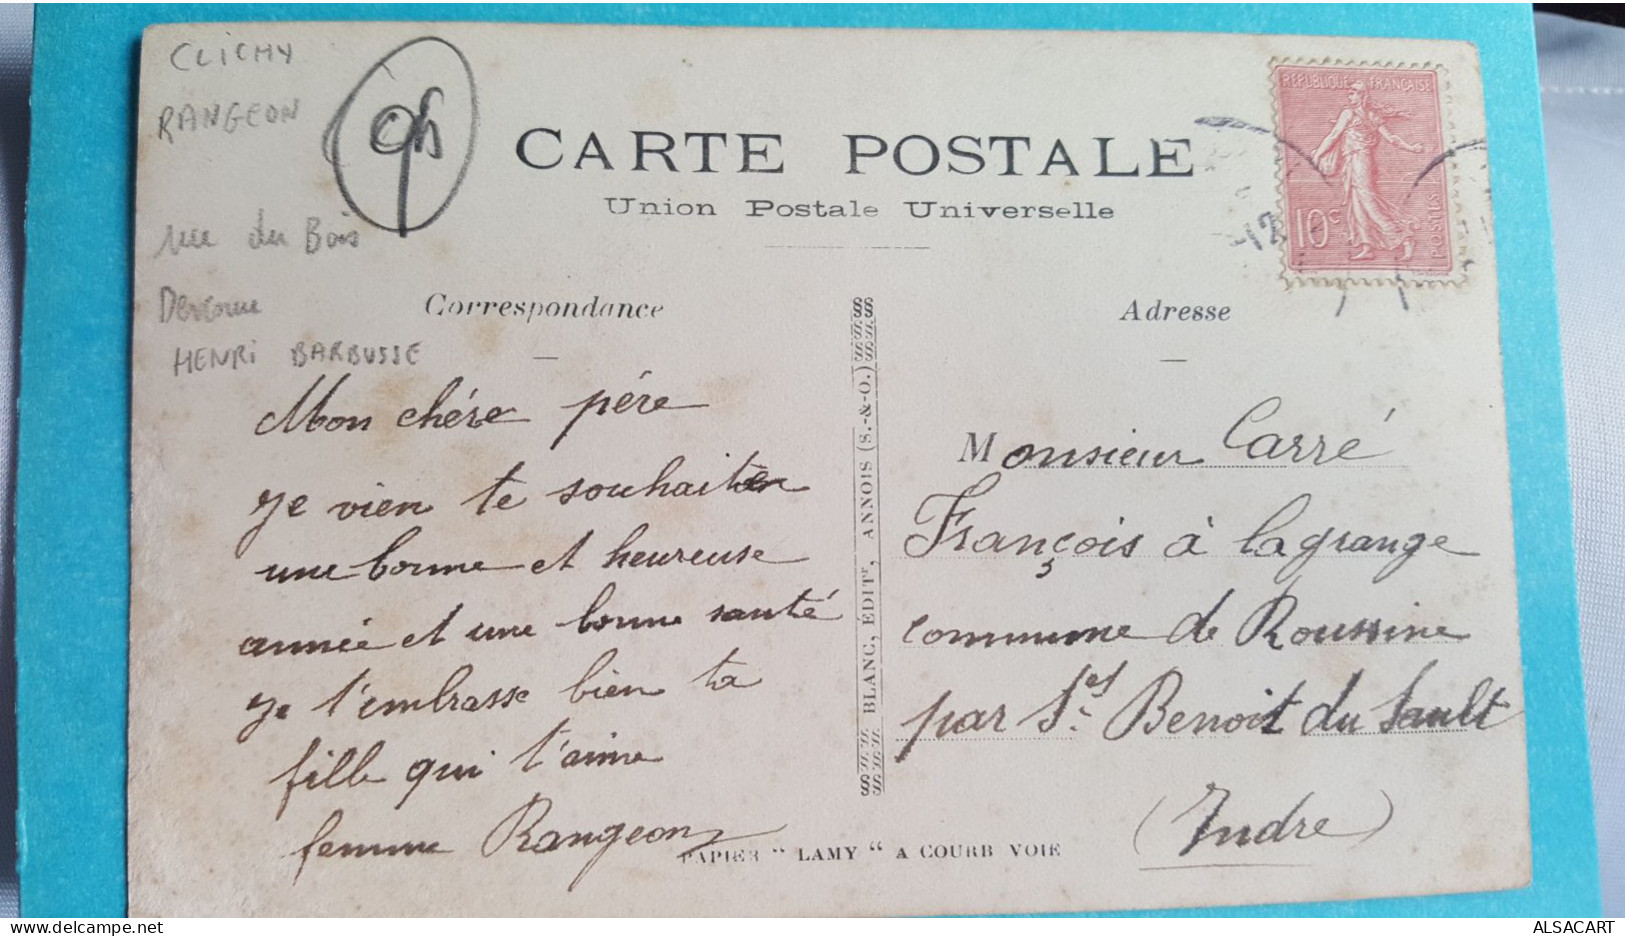 CLICHY
RANGEON
rue du Bois
Devenue
HENRI BARBUSSE
CARTE POSTALE
Union Postale Universelle
REPUBLIQUE FRANÇAISE
10c
POSTES
Correspondance
Adresse
Mon chére pére
je vien te souhaiter
une bonne et heureuse
année et une bonne santé
je t'embrasse bien ta
fille qui t'aime
femme Rangeon
§§ BLANC, EDITr, ANNOIS (S.-&-O.) §§
Monsieur Carré
François à lagrange
commune de Roussine
par St Benoit du Sault
(Indre)
PAPIER “ LAMY “ A COURB VOIE
ALSACART